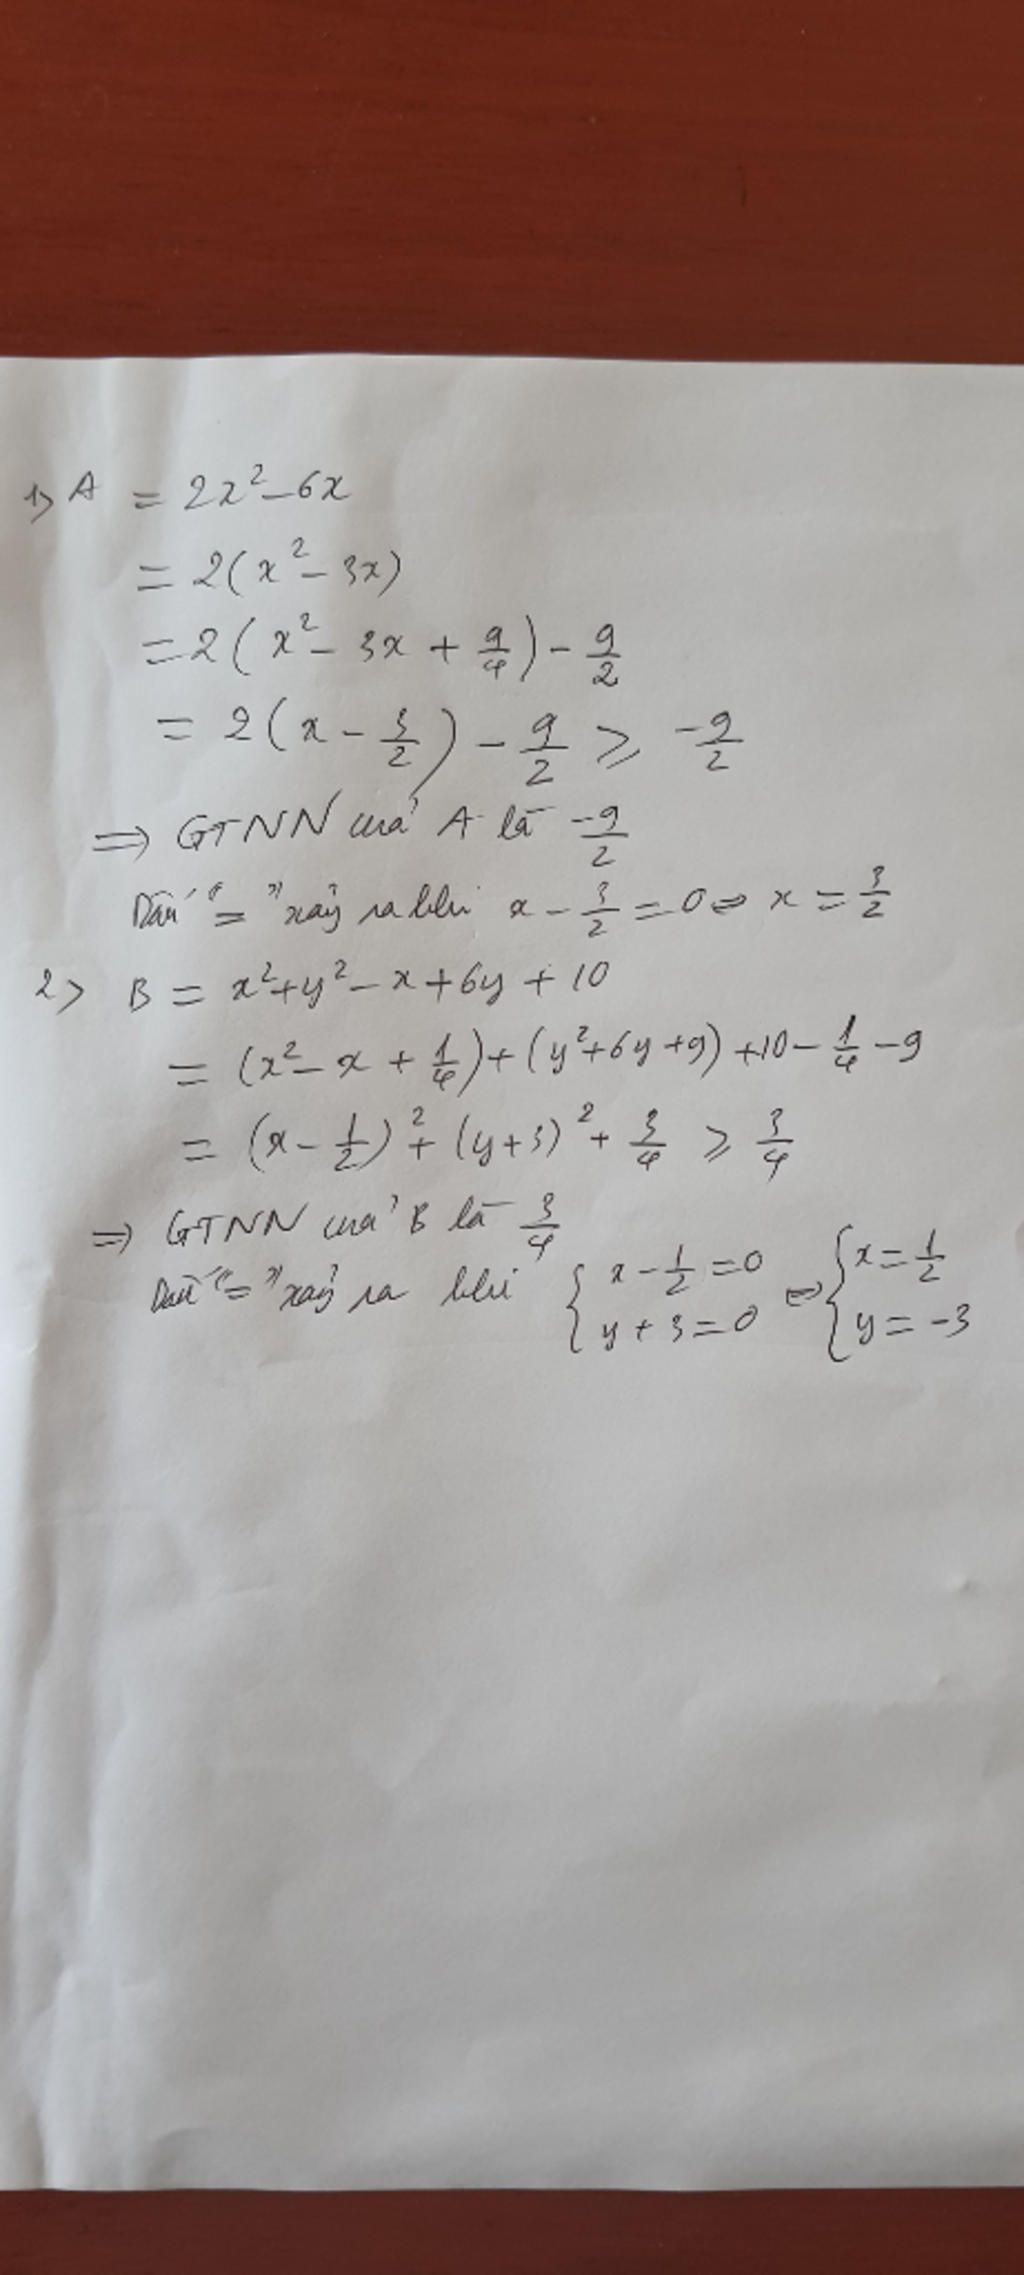 1) A = 2x² - 6x
= 2(x² - 3x)
= 2(x² - 3x + 9/4) - 9/2
= 2(x - 3/2) - 9/2 ≥ -9/2
=> GTNN của A là -9/2
Dấu "=" xảy ra khi x - 3/2 = 0 ⇔ x = 3/2
2) B = x² + y² - x + 6y + 10
= (x² - x + 1/4) + (y² + 6y + 9) + 10 - 1/4 - 9
= (x - 1/2)² + (y + 3)² + 3/4 ≥ 3/4
=> GTNN của B là 3/4
Dấu "=" xảy ra khi { x - 1/2 = 0 ⇔ { x = 1/2
y + 3 = 0 y = -3